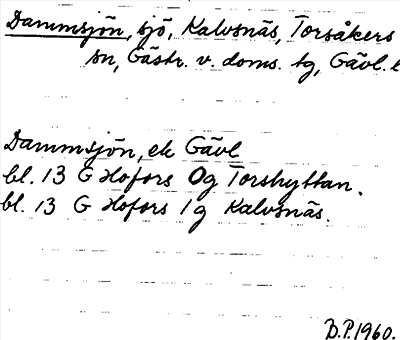 Dammsjön, sjö, Kalvsnäs, Torsåkers
sn, Gästr. v. doms. tg, Gävl. l
Dammsjön, ek Gävl
bl. 13 G Hofors 0g Torshyttan.
bl. 13 G Hofors 1g Kalvsnäs.
B.P. 1960.